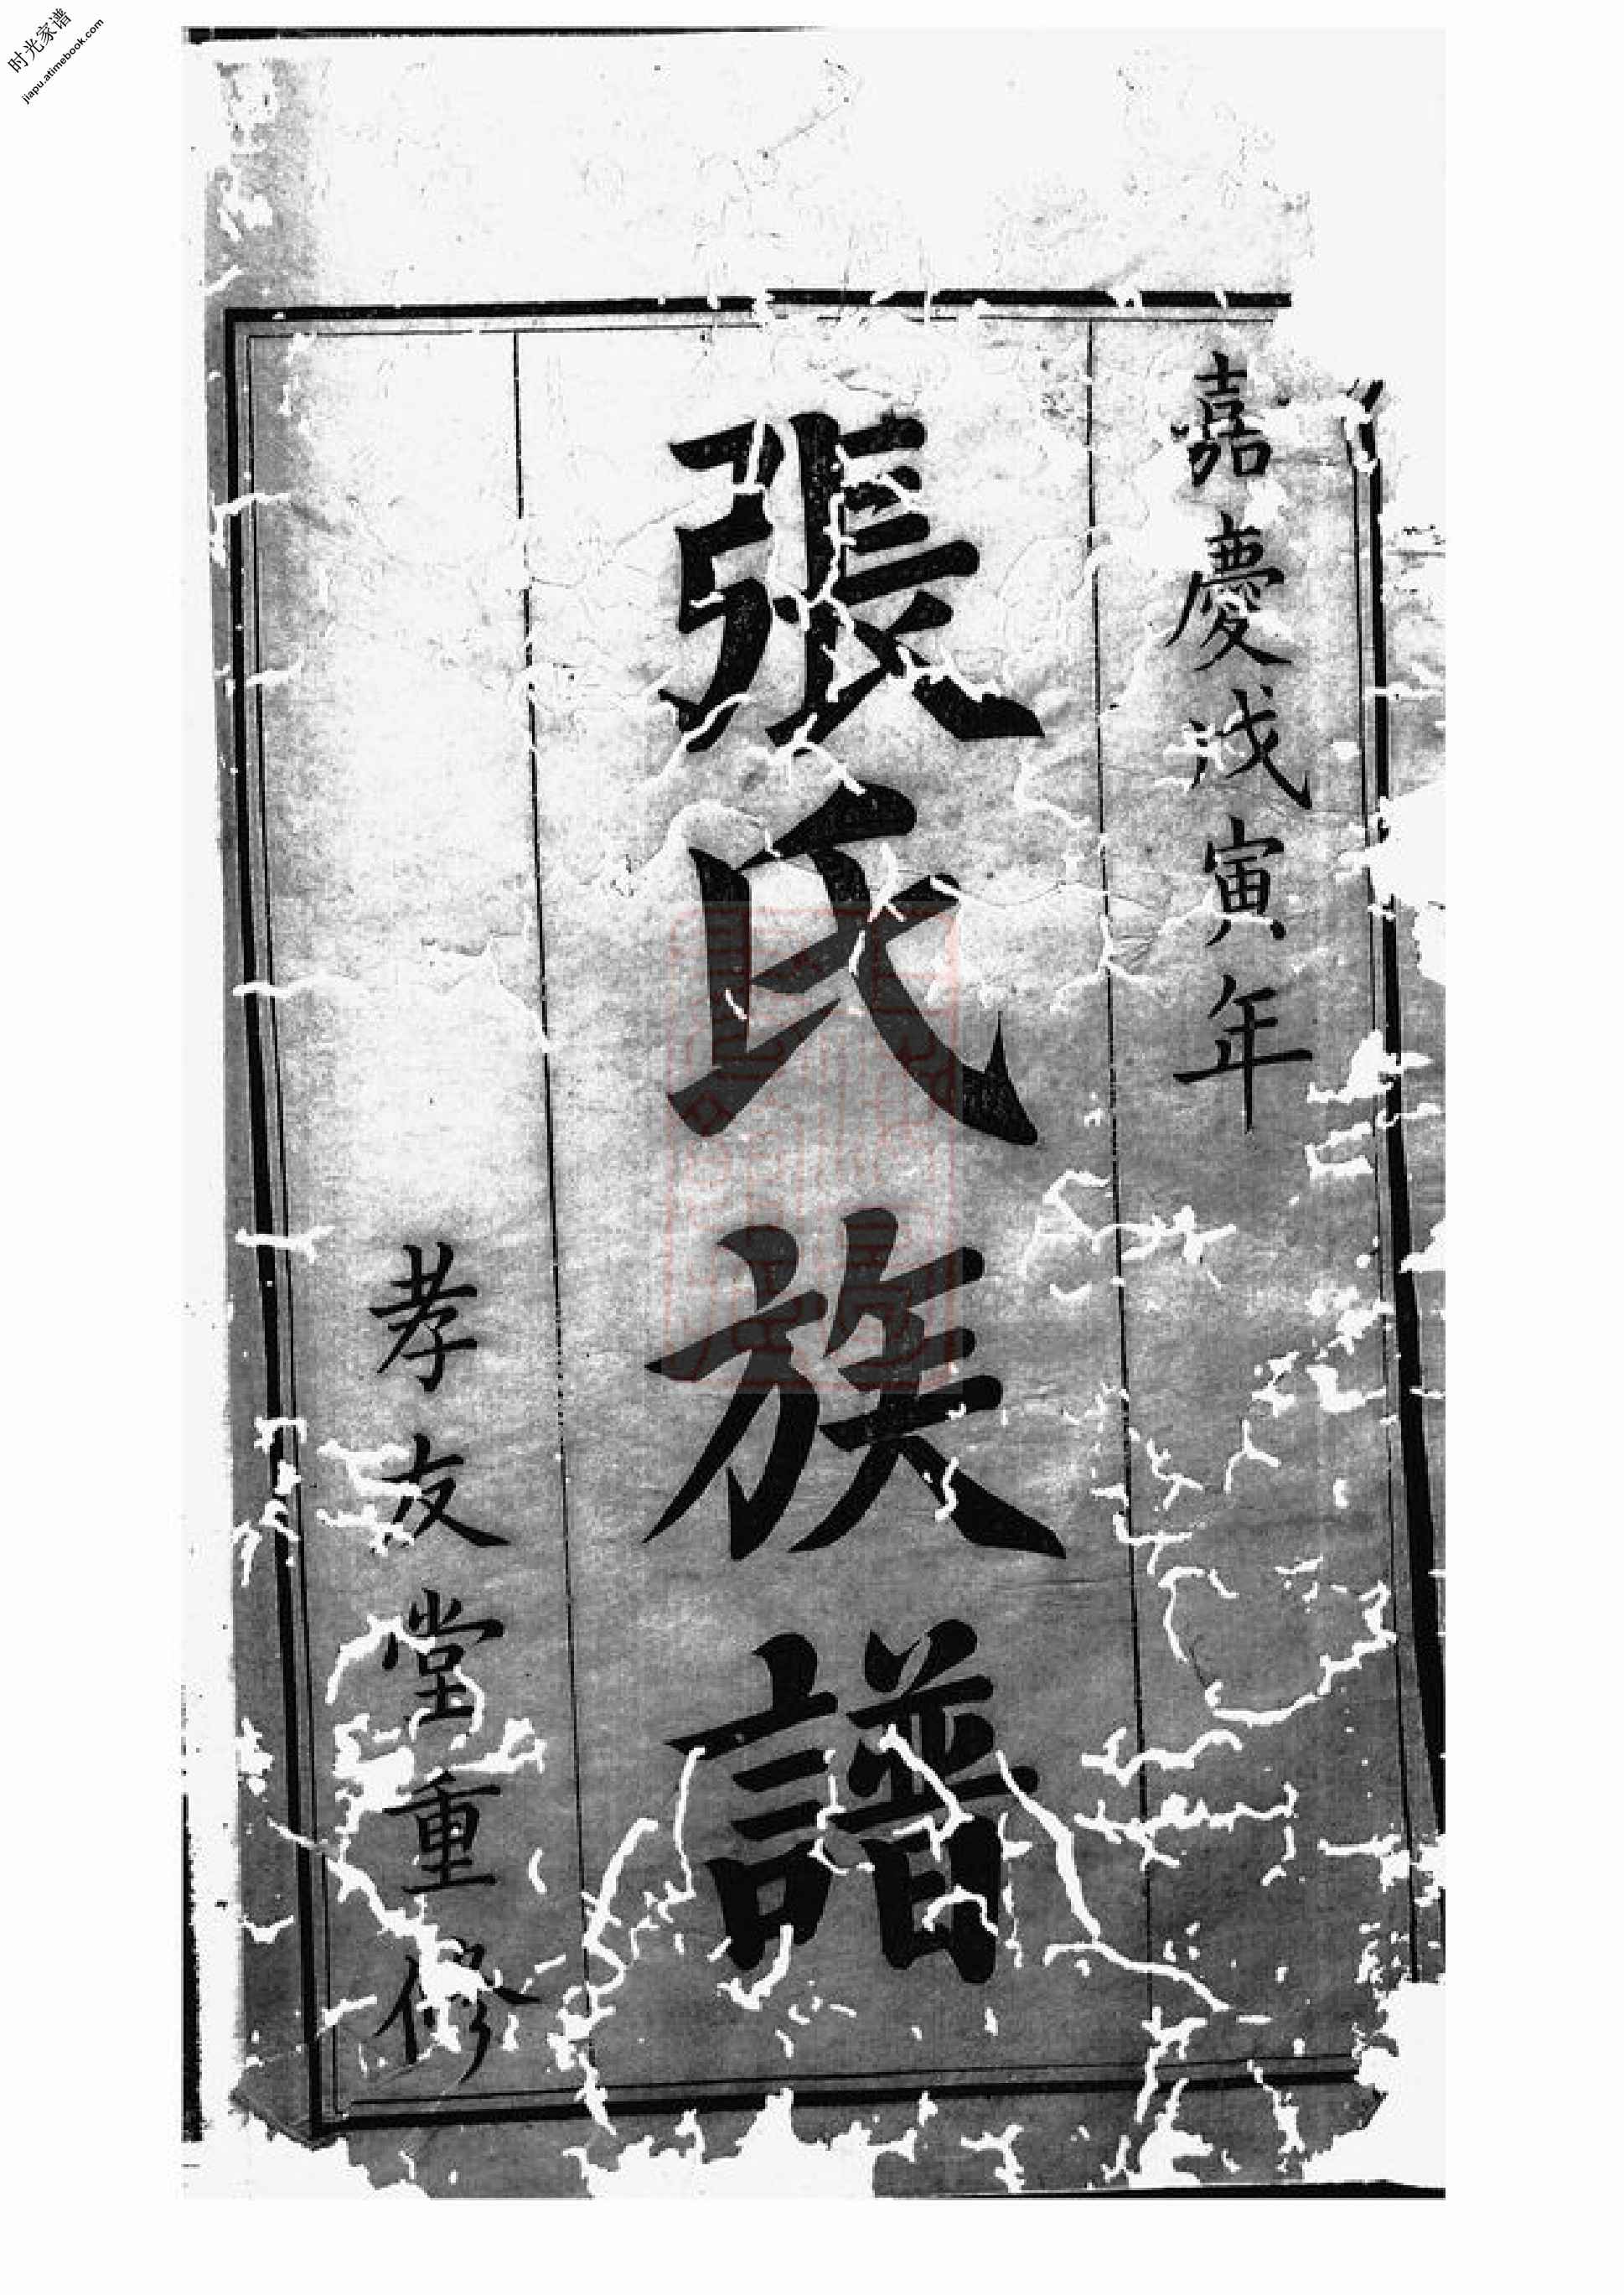 时光家谱
jiapu.atimebook.com
嘉慶戊寅年
張氏族譜
孝友堂重修